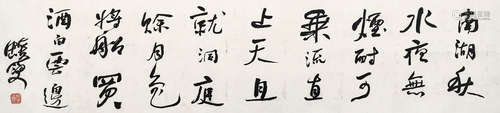 南湖秋
水夜無
煙耐可
乘流直
上天且
就洞庭
賒月色
將船買
酒白雲邊